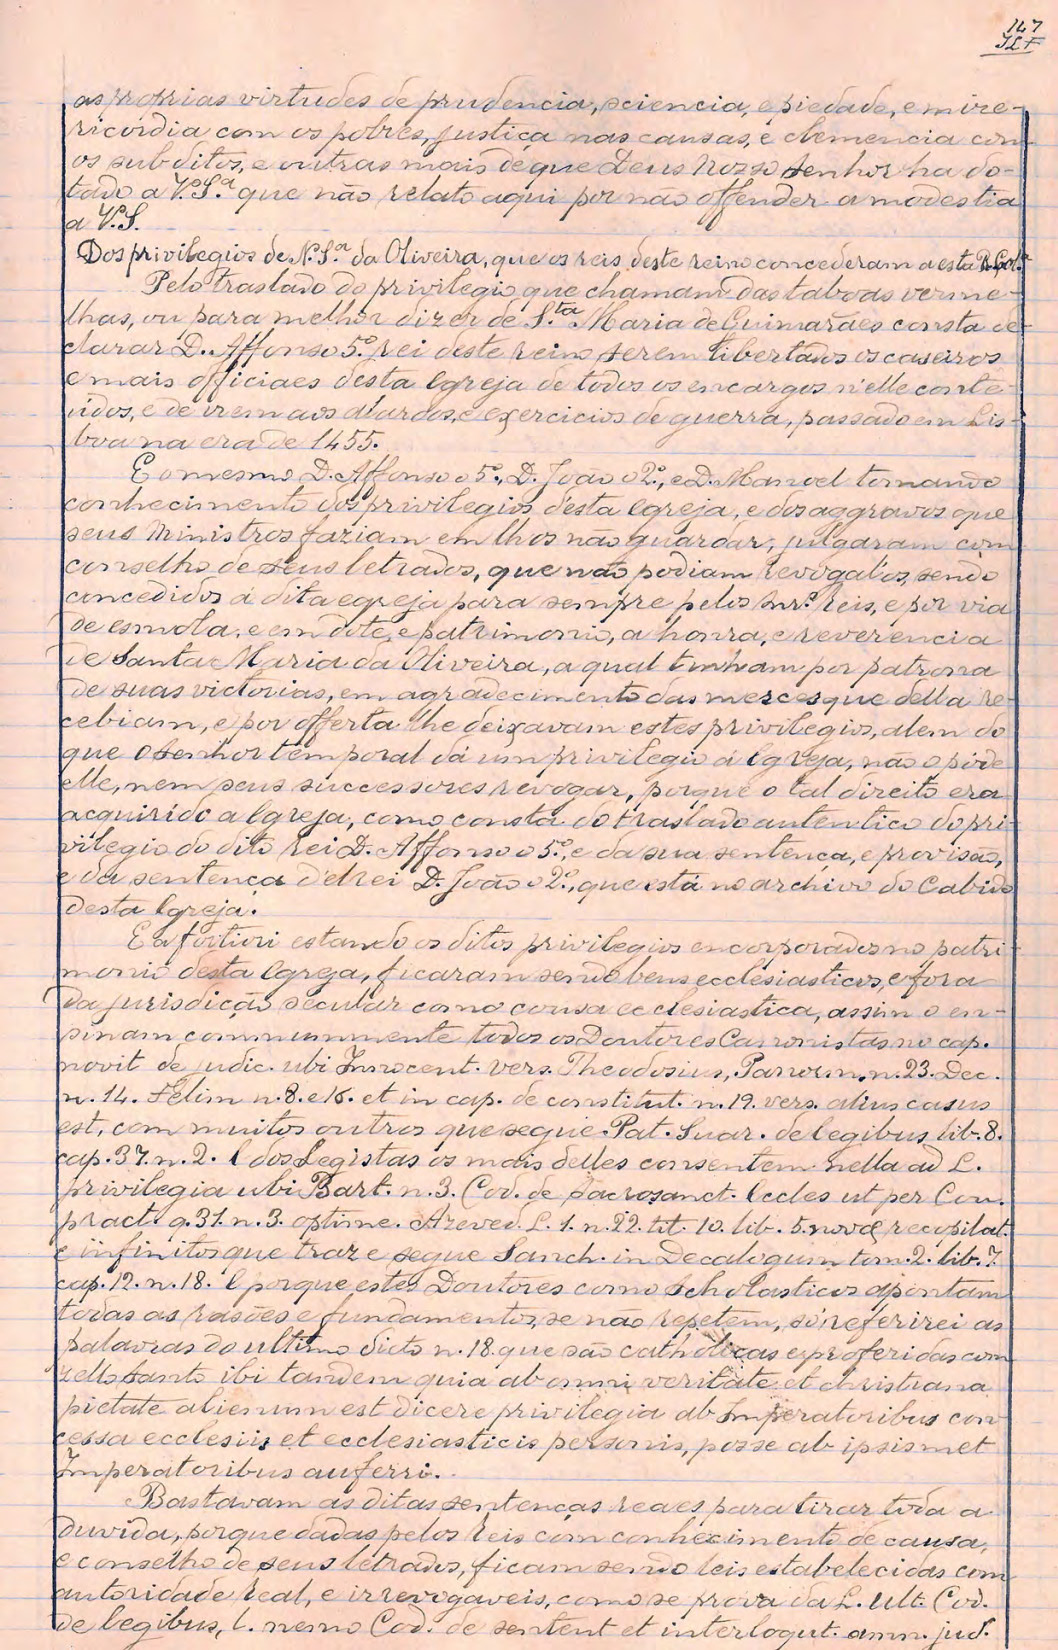 147
as proprias virtudes de prudencia, sciencia, e piedade, e mize-
ricordia com os pobres, justiça nas causas, e clemencia com
os subditos, e outras mais de que Deus Nosso Senhor ha do-
tado a V.S.ª que não relato aqui por não offender a modestia
a V.S.
Dos privilegios de N.S.ª da Oliveira, que os reis deste reino concederam a esta R. Col.ª
Pelo traslado do privilegio que chamam das taboas verme-
lhas, ou para melhor dizer de S.ta Maria de Guimarães consta de-
clarar D. Affonso 5.º rei deste reino serem libertados os caseiros
e mais officiaes desta Egreja de todos os encargos n'elle conte-
údos, e de irem aos alardos, e exercicios de guerra, passado em Lis-
boa na era de 1455.
E o mesmo D. Affonso o 5.º, D. João o 2.º, e D. Manoel tomando
conhecimento dos privilegios d'esta Egreja, e dos aggravos que
seus Ministros faziam em lhos não guardar, julgaram com
conselho de seus letrados, que não podiam revogal-os, sendo
concedidos á dita egreja para sempre pelos Snr.es Reis, e por via
de esmola, e em dote, e patrimonio, a honra, e reverencia
de Santa Maria da Oliveira, a qual tinham por patrona
de suas victorias, em agradecimento das merces que della re-
cebiam, e por offerta lhe deixavam estes privilegios, alem do
que o senhor temporal dá um privilegio á Egreja, não o póde
elle, nem seus successores revogar, porque o tal direito era
acquirido a Egreja, como consta do traslado autentico do pri-
vilegio do dito rei D. Affonso o 5.º, e da sua sentença, e provisão,
e da sentença d'elrei D. João o 2.º, que está no archivo do Cabido
desta Egreja.
E a fortiori estando os ditos privilegios encorporados no patri-
monio desta Egreja, ficaram sendo bens ecclesiasticos, e fora
da jurisdição secular como cousa ecclesiastica, assim o en-
sinam communmente todos os Doutores Canonistas no cap.
novit de judic. ubi Innocent. vers. Theodosius, Panorm. n. 23. Dec.
n. 14. Felim n. 8. e 16. et in cap. de constitut. n. 19. vers. alius casus
est, com muitos outros que segue Pat. Suar. de legibus lib. 8.
cap. 37. n. 2. E dos Legistas os mais delles consentem nella ad L.
privilegia ubi Bart. n. 3. Cod. de Sacrosanct. Eccles ut per Cou.
pract. q. 31. n. 3. optime. Azeved. L. 1. n. 22. tit. 10. lib. 5. novæ recopilat.
e infinitos que traz e segue Sanch. in Decalogum tom. 2. lib. 7.
cap. 12. n. 18. E porque estes Doutores como scholasticos apontam
todas as rasões e fundamentos, se não repetem, só referirei as
palavras do ultimo dicto n. 18. que são catholicas e proferidas com
zello santo ibi tandem quia ab omni veritate et christiana
pietate alienum est dicere privilegia ab Imperatoribus con
cessa ecclesiis et ecclesiasticis personis, posse ab ipsismet
Imperatoribus auferri.
Bastavam as ditas sentenças reaes para tirar toda a
duvida, porque dadas pelos Reis com conhecimento de causa,
e conselho de seus letrados, ficam sendo leis estabelecidas com
autoridade real, e irrevogaveis, como se prova da L. ult. Cod.
de legibus, l. nemo Cod. de sentent et interloqut. omn. jud.